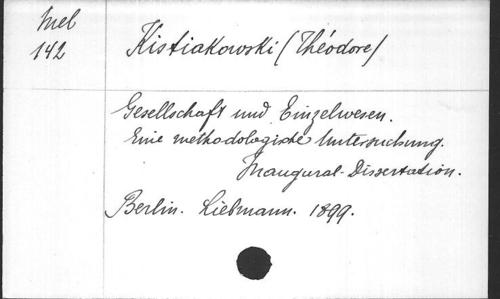 Mel
142
Kistiakowski (Théodore)
Gesellschaft und Einzelwesen.
Eine methodologische Untersuchung.
Inaugural-Dissertation.
Berlin. Liebmann. 1899.